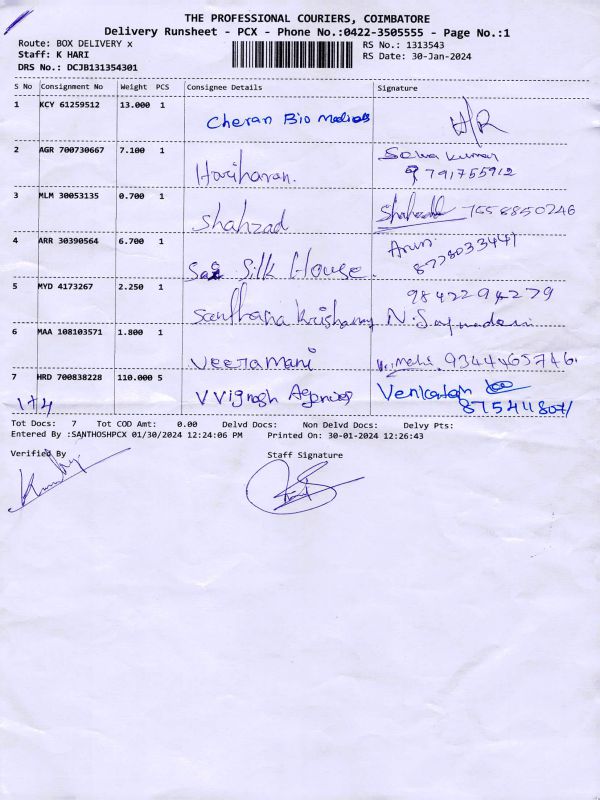 THE PROFESSIONAL COURIERS, COIMBATORE
Delivery Runsheet - PCX - Phone No.:0422-3505555 - Page No.:1
Route: BOX DELIVERY x
RS No.: 1313543
Staff: K HARI
RS Date: 30-Jan-2024
DRS No.: DCJB131354301
S No Consignment No Weight PCS Consignee Details Signature
1 KCY 61259512 13.000 1 Cheran Bio
2 AGR 700730667 7.100 1 Hariharan.
791755912
3 MLM 30053135 0.700 1 Shahzad
Shahzad 7558850246
4 ARR 30390564 6.700 1 Silk House.
8778033441
5 MYD 4173267 2.250 1 Santhana
9842294279
6 MAA 108103571 1.800 1 Veeramani
7 HRD 700838228 110.000 5 V Vignesh
1+4
Tot Docs: 7 Tot COD Amt: 0.00 Delvd Docs: Non Delvd Docs: Delvy Pts:
Entered By :SANTHOSHPCX 01/30/2024 12:24:06 PM Printed On: 30-01-2024 12:26:43
Verified By Staff Signature